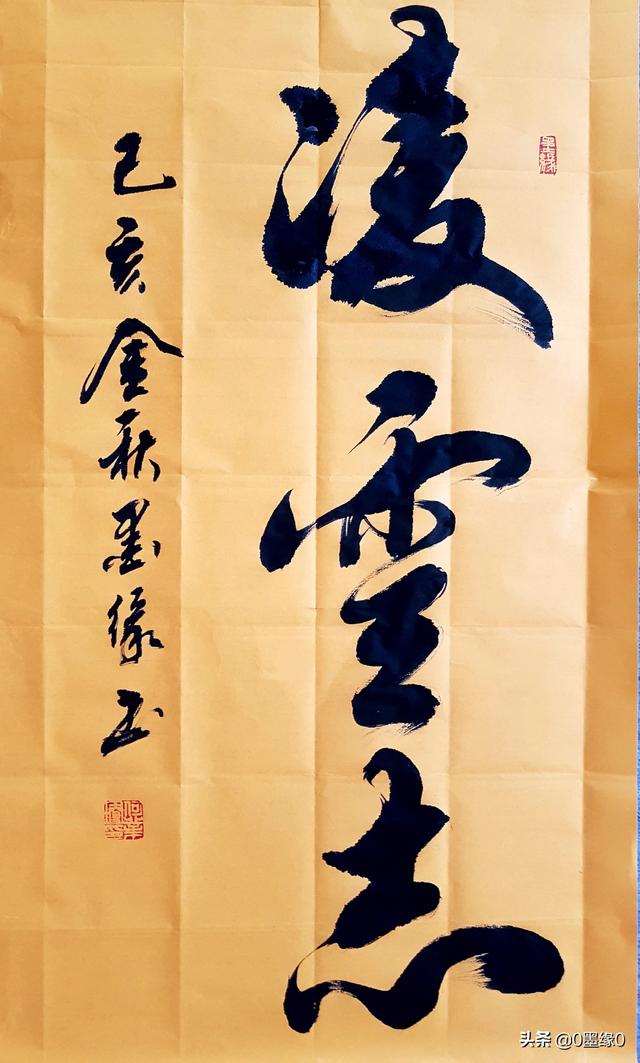 凌雲志
己亥金秋墨缘书
墨缘
头条 @0墨缘0